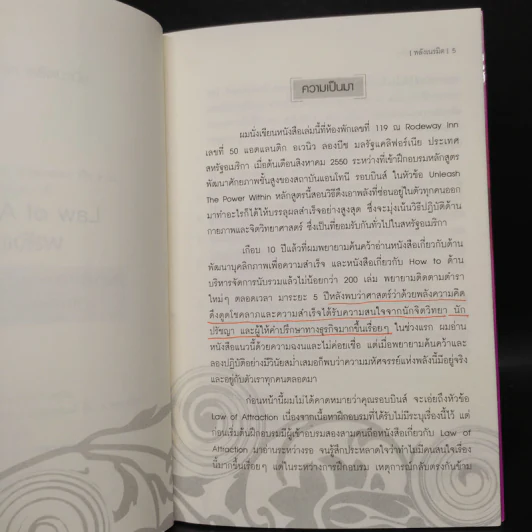 | พลังเนรมิต | 5
ความเป็นมา
ผมนั่งเขียนหนังสือเล่มนี้ที่ห้องพักเลขที่ 119 ณ Rodeway Inn
เลขที่ 50 แอตแลนติก อเวนิว ลองบีช มลรัฐแคลิฟอร์เนีย ประเทศ
สหรัฐอเมริกา เมื่อต้นเดือนสิงหาคม 2550 ระหว่างที่เข้าฝึกอบรมหลักสูตร
พัฒนาศักยภาพชั้นสูงของสถาบันแอนโทนี รอบบินส์ ในหัวข้อ Unleash
The Power Within หลักสูตรนี้สอนวิธีดึงเอาพลังที่ซ่อนอยู่ในตัวทุกคนออก
มาทำอะไรก็ได้ให้บรรลุผลสำเร็จอย่างสูงสุด ซึ่งจะมุ่งเน้นวิธีปฏิบัติด้าน
กายภาพและจิตวิทยาศาสตร์ ซึ่งเป็นที่ยอมรับกันทั่วไปในสหรัฐอเมริกา
เกือบ 10 ปีแล้วที่ผมพยายามค้นคว้าอ่านหนังสือเกี่ยวกับด้าน
พัฒนาบุคลิกภาพเพื่อความสำเร็จ และหนังสือเกี่ยวกับ How to ด้าน
บริหารจัดการนับรวมแล้วไม่น้อยกว่า 200 เล่ม พยายามติดตามตำรา
ใหม่ๆ ตลอดเวลา มาระยะ 5 ปีหลังพบว่าศาสตร์ว่าด้วยพลังความคิด
ดึงดูดโชคลาภและความสำเร็จได้รับความสนใจจากนักจิตวิทยา นัก
ปรัชญา และผู้ให้คำปรึกษาทางธุรกิจมากขึ้นเรื่อยๆ ในช่วงแรก ผมอ่าน
หนังสือแนวนี้ด้วยความฉงนและไม่ค่อยเชื่อ แต่เมื่อพยายามค้นคว้าและ
ลองปฏิบัติอย่างมีวินัยสม่ำเสมอก็พบว่าความมหัศจรรย์แห่งพลังนี้มีอยู่จริง
และอยู่กับตัวเราทุกคนตลอดมา
ก่อนหน้านี้ผมไม่ได้คาดหมายว่าคุณรอบบินส์ จะเอ่ยถึงหัวข้อ
Law of Attraction เนื่องจากเนื้อหาฝึกอบรมที่ได้รับไม่มีระบุเรื่องนี้ไว้ แต่
ก่อนเริ่มต้นฝึกอบรมมีผู้เข้าอบรมสองสามคนถือหนังสือเกี่ยวกับ Law of
Attraction มาอ่านระหว่างรอ จนรู้สึกประหลาดใจว่าทำไมมีคนสนใจเรื่อง
นี้มากขึ้นเรื่อยๆ แต่ในระหว่างการฝึกอบรม เหตุการณ์กลับตรงกันข้าม